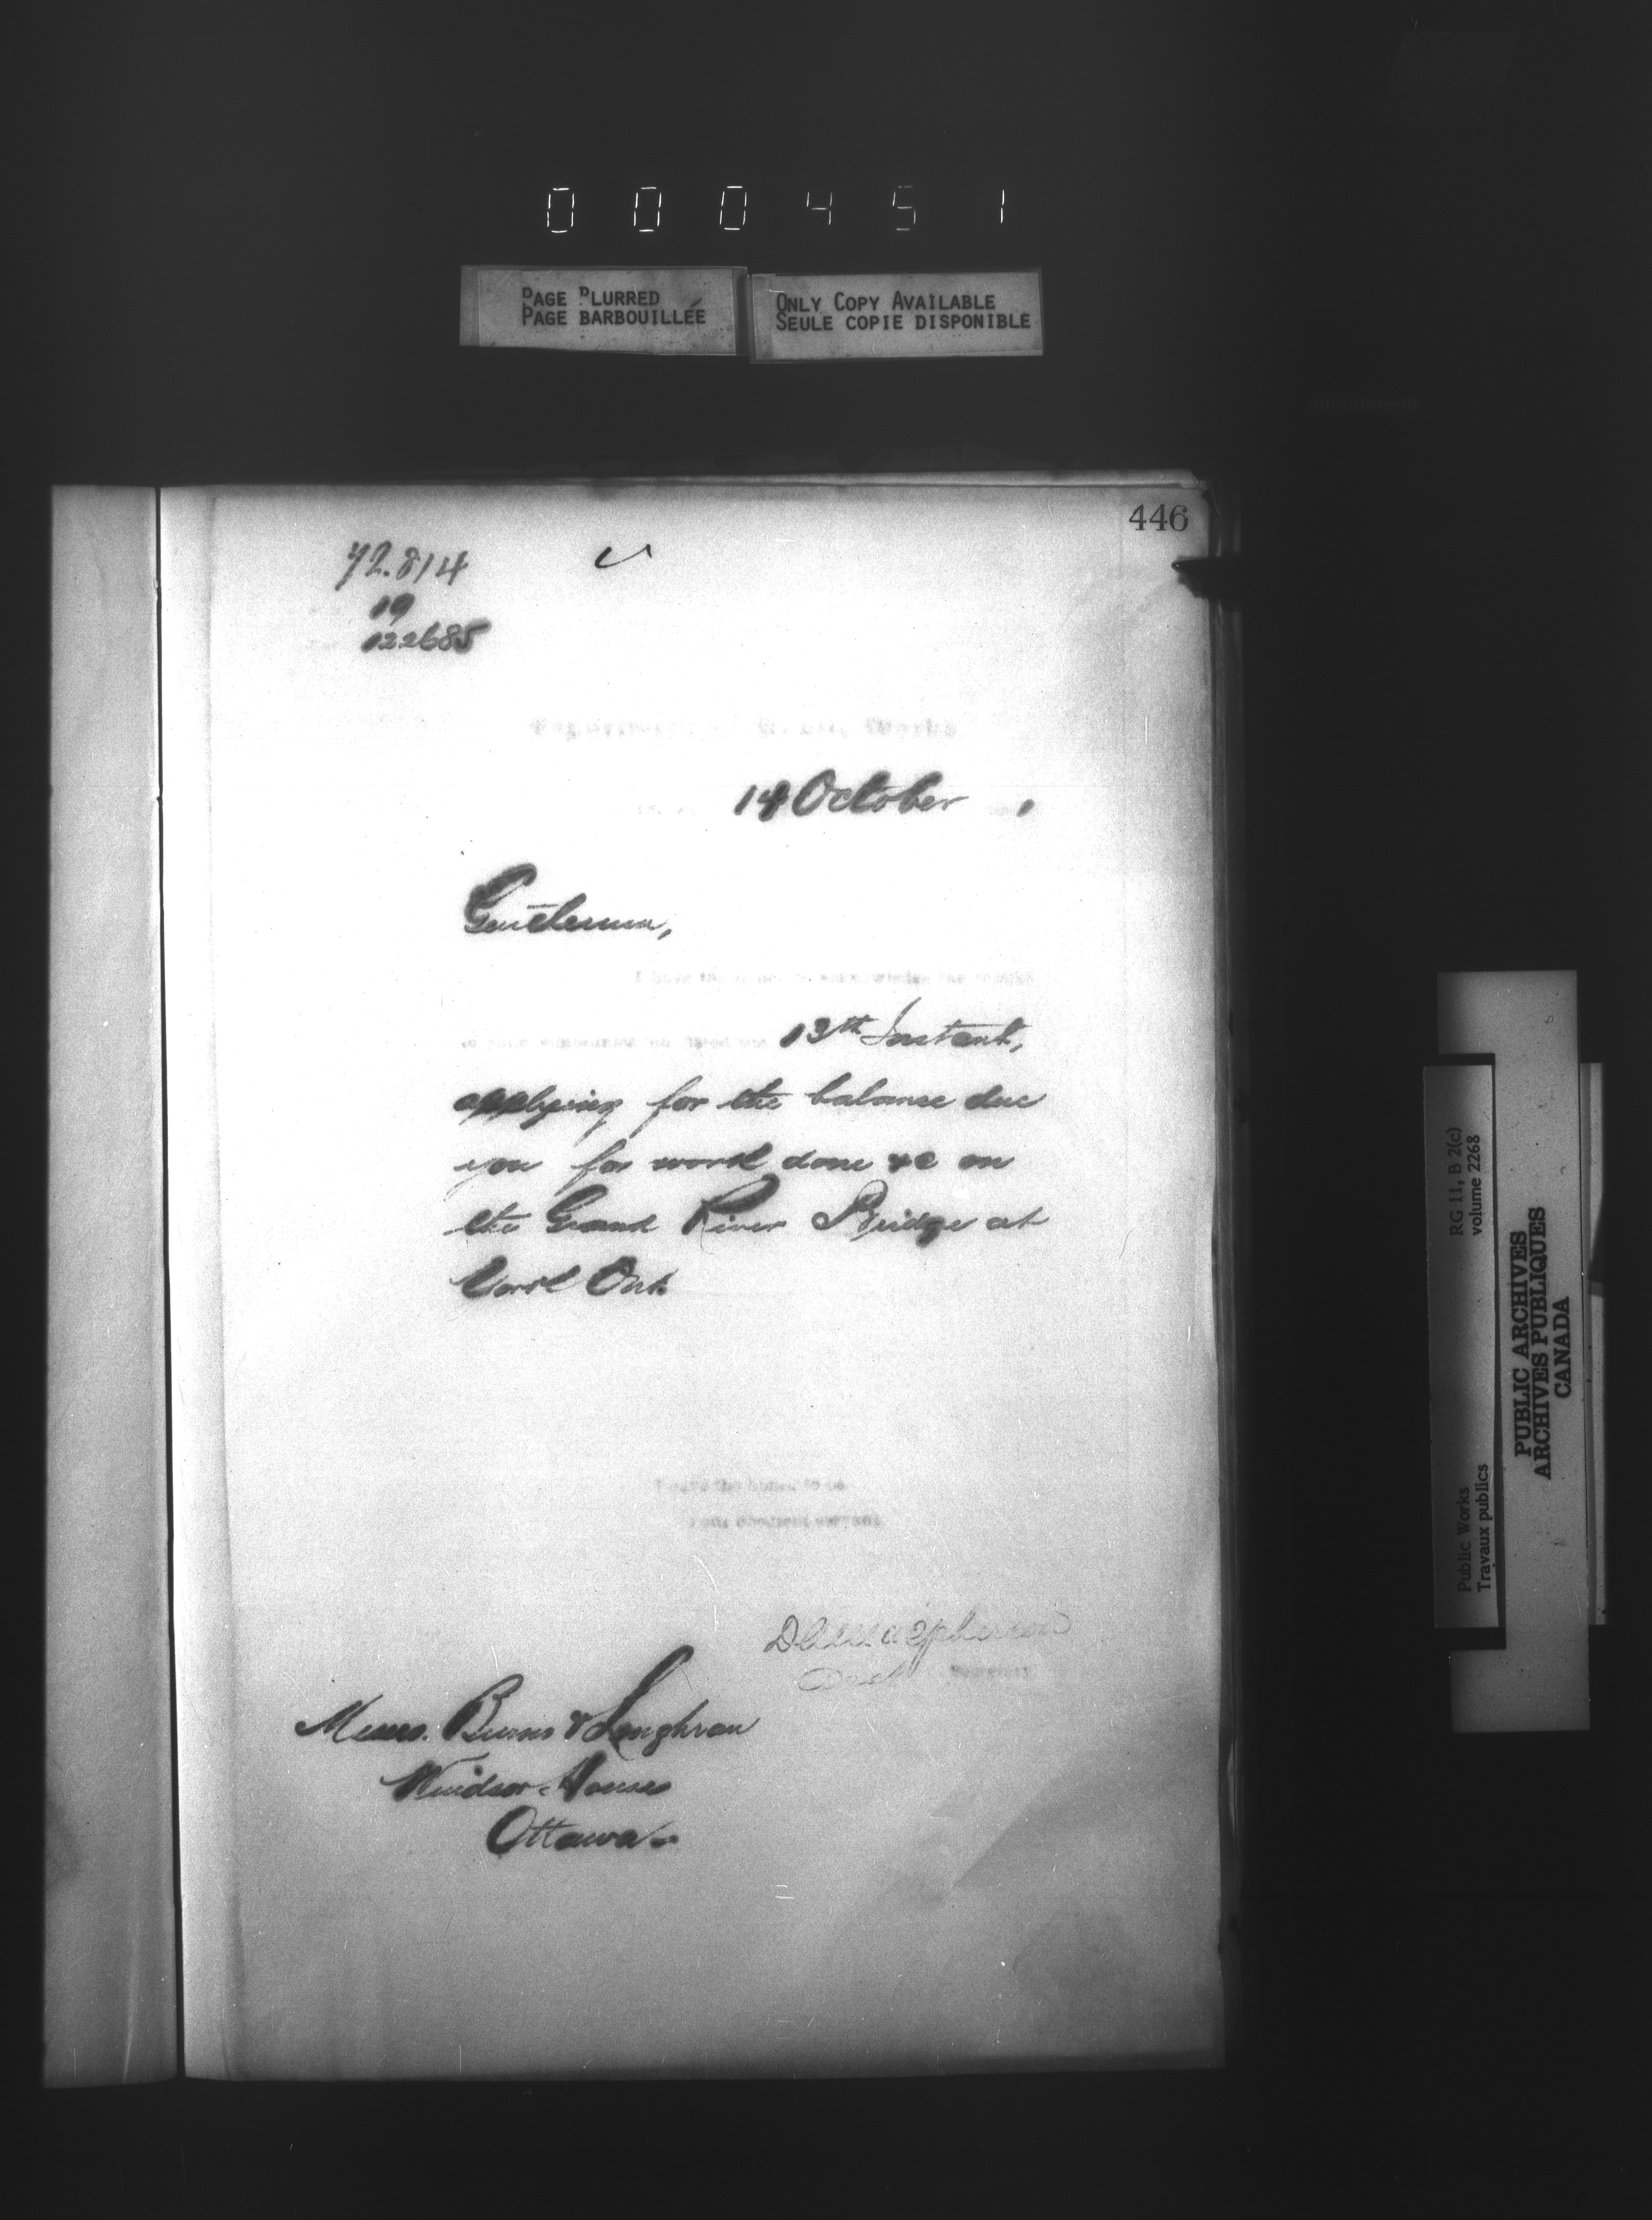 000451
PAGE BLURRED
PAGE BARBOUILLÉE
ONLY COPY AVAILABLE
SEULE COPIE DISPONIBLE
446
72.814
19
122685
Department of Public Works
14 October
Gentlemen,
I have the honor to acknowledge the receipt
of your 13th Instant,
applying for the balance due
you for work done &c on
the Grand River Bridge at
York Ont.
I have the honor to be
Your obedient servant
Messrs. Burns & Loughran
Windsor House
Ottawa
RG 11, B 2(c)
volume 2268
Public Works
Travaux publics
PUBLIC ARCHIVES
ARCHIVES PUBLIQUES
CANADA